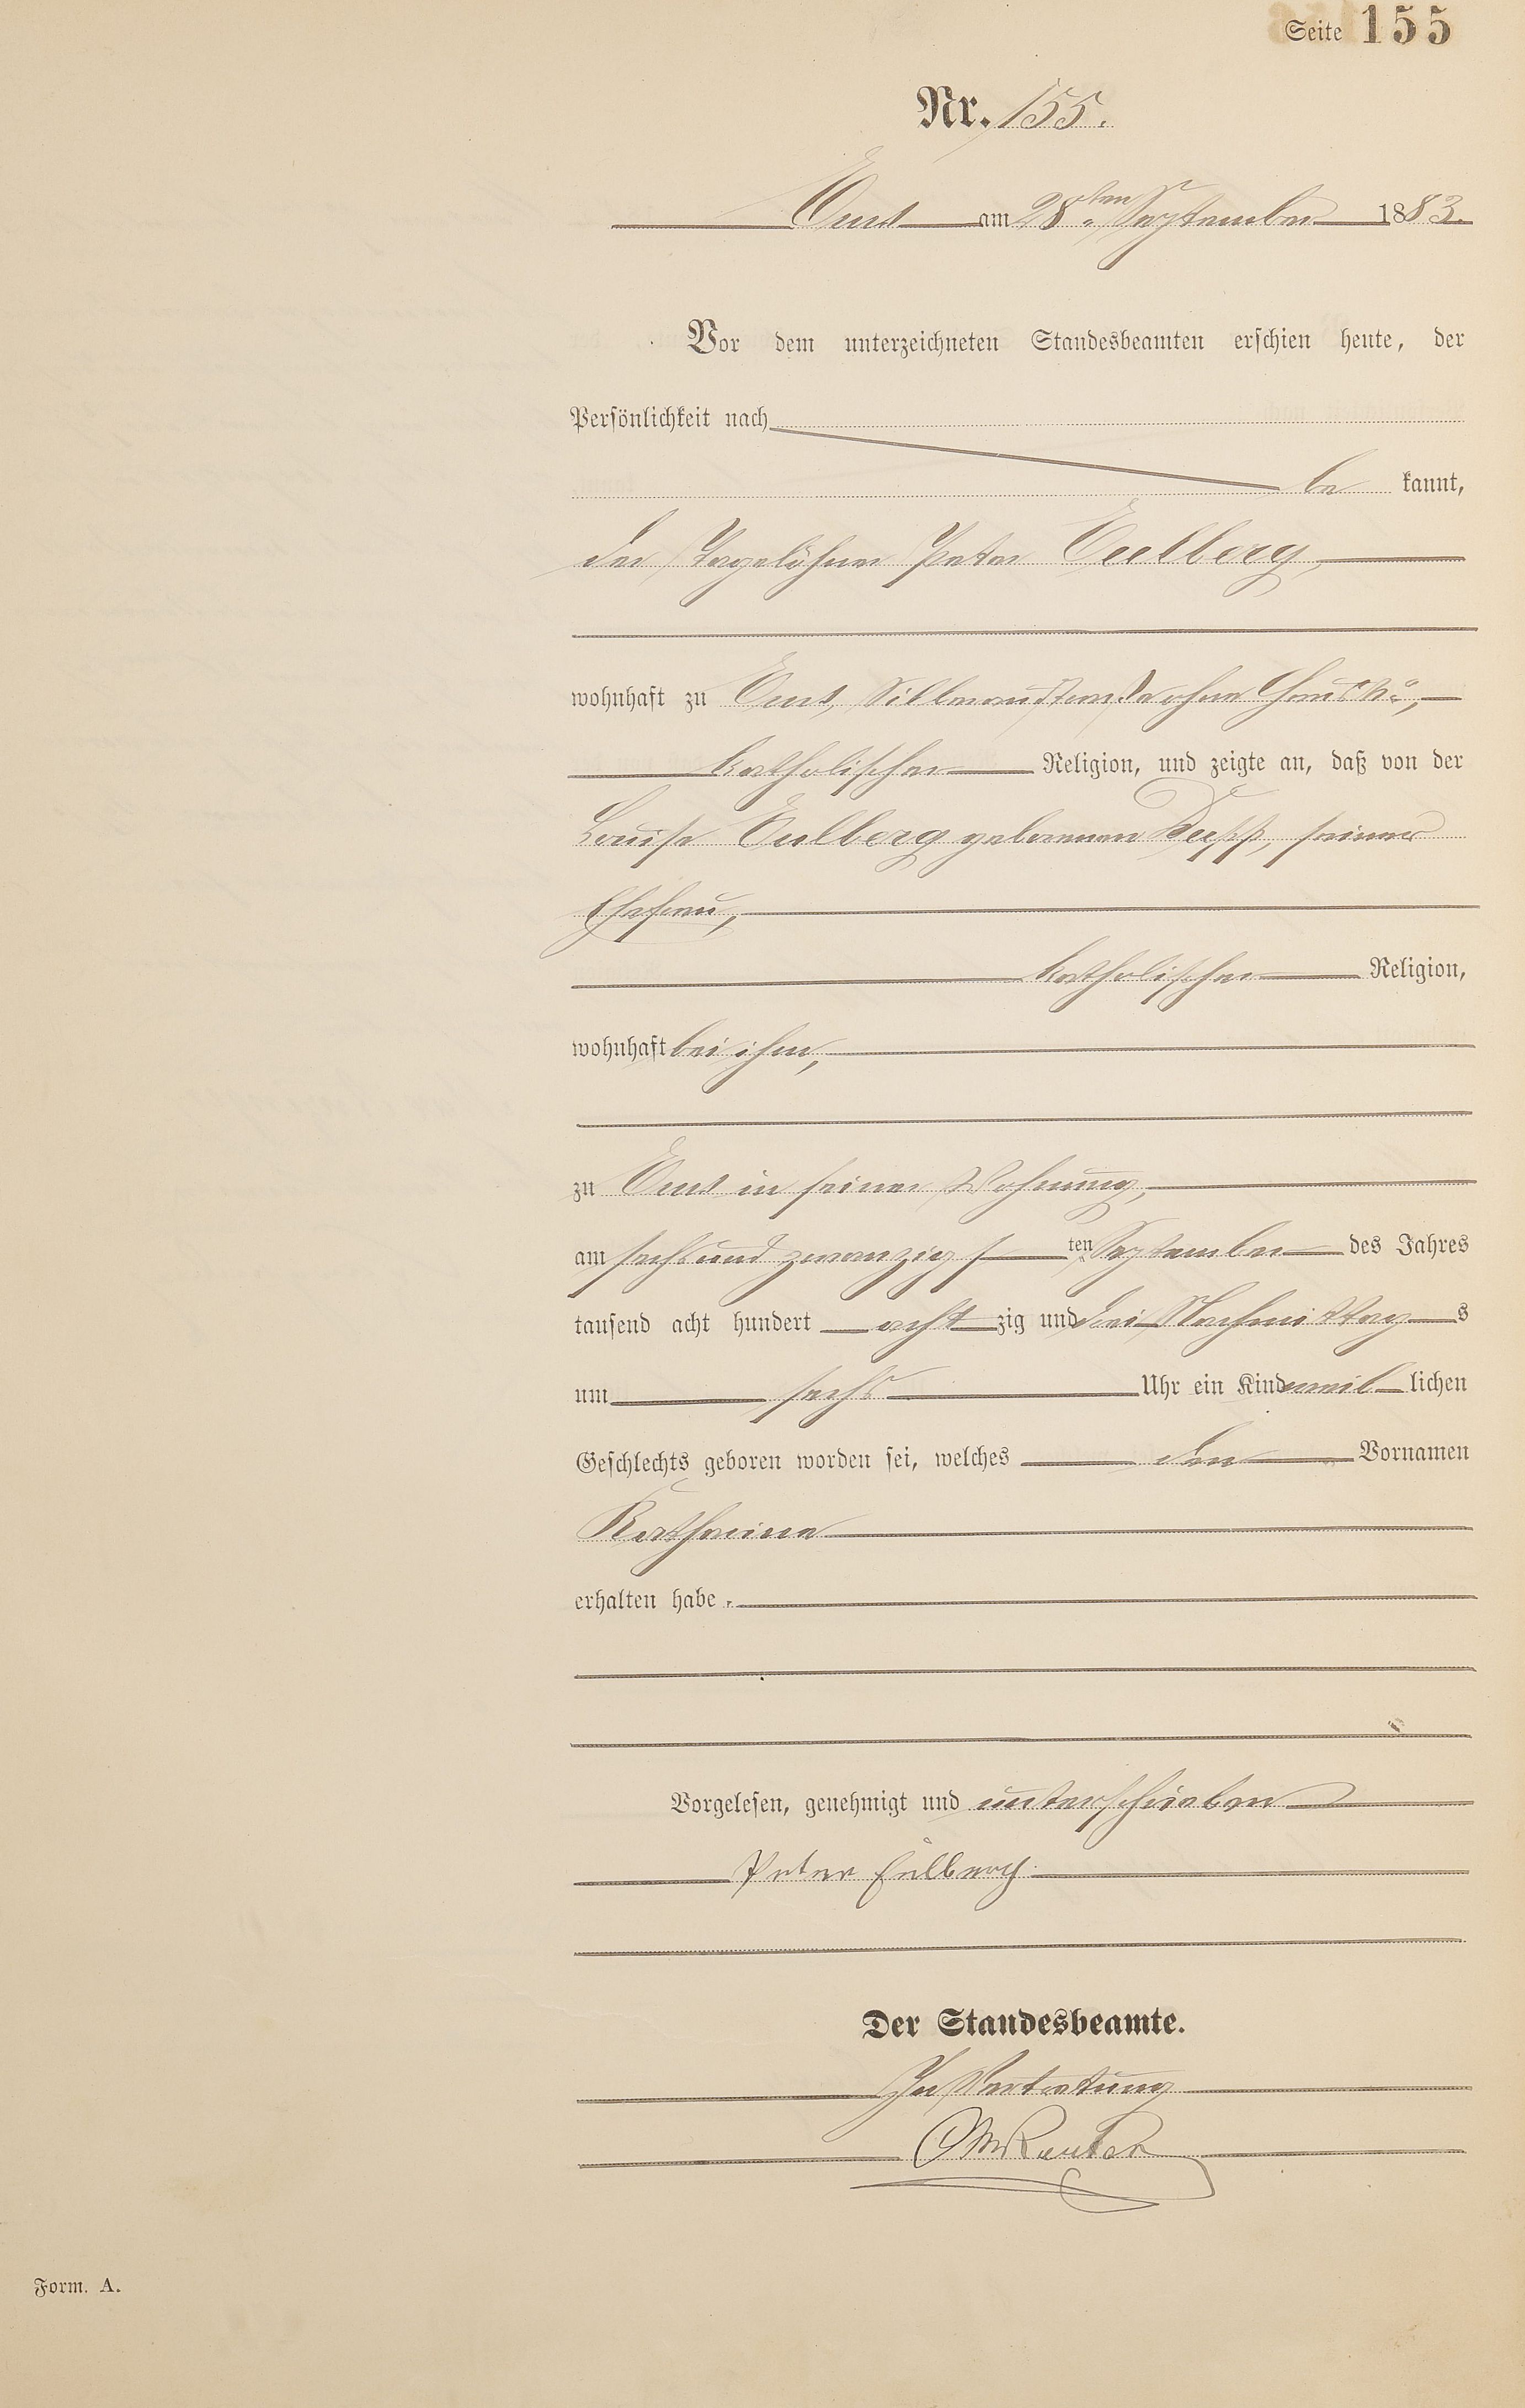 Seite 155
Nr. 155.
Ems am 28ten September 1883.
Vor dem unterzeichneten Standesbeamten erschien heute, der
Persönlichkeit nach
be kannt,
der Tagelöhner Peter Eulberg,
wohnhaft zu Ems, ohne Haus No,
katholischer Religion, und zeigte an, daß von der
Louise Eulberg geborenen seiner
Ehefrau,
katholischer Religion,
wohnhaft bei ihm,
zu Ems in seiner Wohnung,
am sechsundzwanzigsten September des Jahres
tausend acht hundert acht zig und drei Nachmittags
um sechs Uhr ein Kind weiblichen
Geschlechts geboren worden sei, welches den Vornamen
Katharina
erhalten habe.
Vorgelesen, genehmigt und unterschrieben
Peter Eulberg.
Der Standesbeamte.
In Vertretung
Form. A.